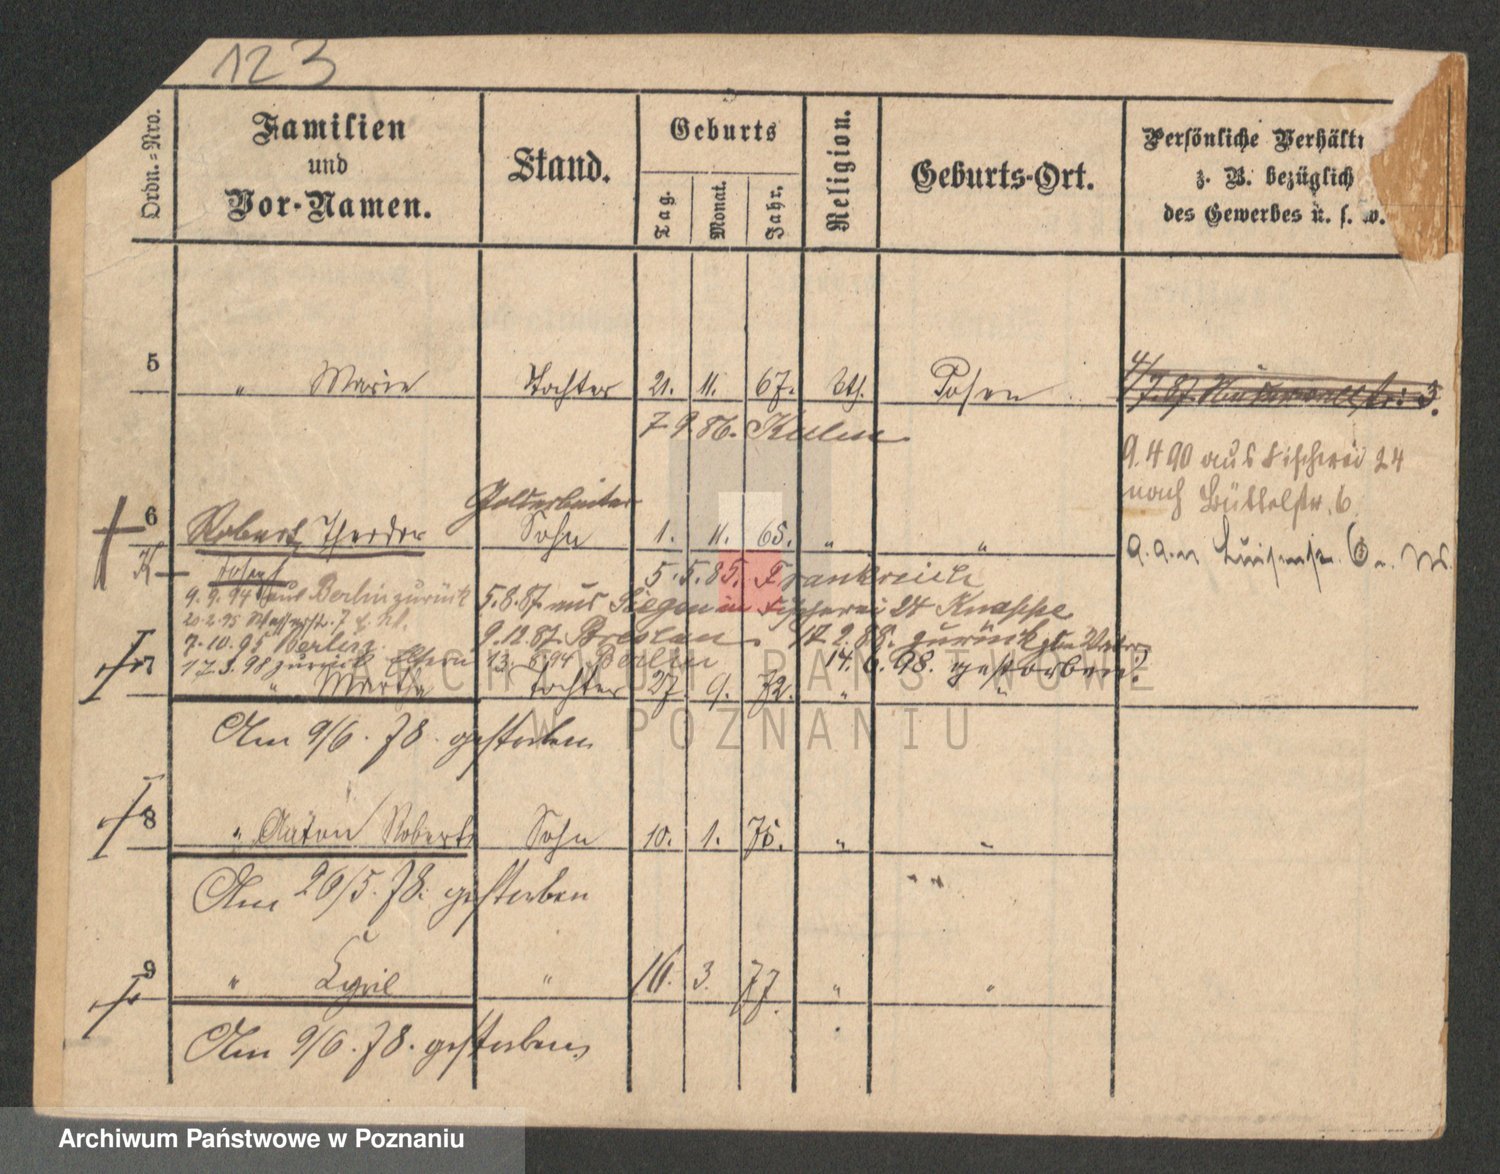 123
Ordn.-Nro.
Familien
und
Vor-Namen.
Stand.
Geburts
Tag.
Monat.
Jahr.
Religion.
Geburts-Ort.
Persönliche Verhält
z. B. bezüglich
des Gewerbes u. s. w.
5 " Marie Tochter 21. 11. 67. kth. Posen
4/7.87.
7.9.86. Kulm
9.4 90 aus Fischerei 24
nach Büttelstr. 6.
Goldarbeiter
6 Robert Theodor Sohn 1. 11. 65. " "
Josef
5.5.85. Frankreich
9.9.94 aus Berlin zurück
5.8.87. aus Siegen in Fischerei 24 Knappe
7.10.95 Berlin
9.12.87. Breslau. 17.2.88. zurück
17.3.98 zurück Eltern
13. 6.94 Berlin
14.6.98. gestorben!
7 " Martha Tochter 27. 9. 72. " "
Am 9/6. 78. gestorben
8 " Anton Robert Sohn 10. 1. 75. " "
Am 20/5. 78. gestorben
9 " Cyril " 16. 3. 77 " "
Am 9/6. 78. gestorben
ARCHIWUM PAŃSTWOWE
W POZNANIU
Archiwum Państwowe w Poznaniu